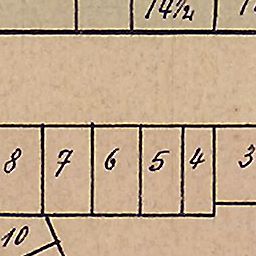 14½
8 7 6 5 4 3
10